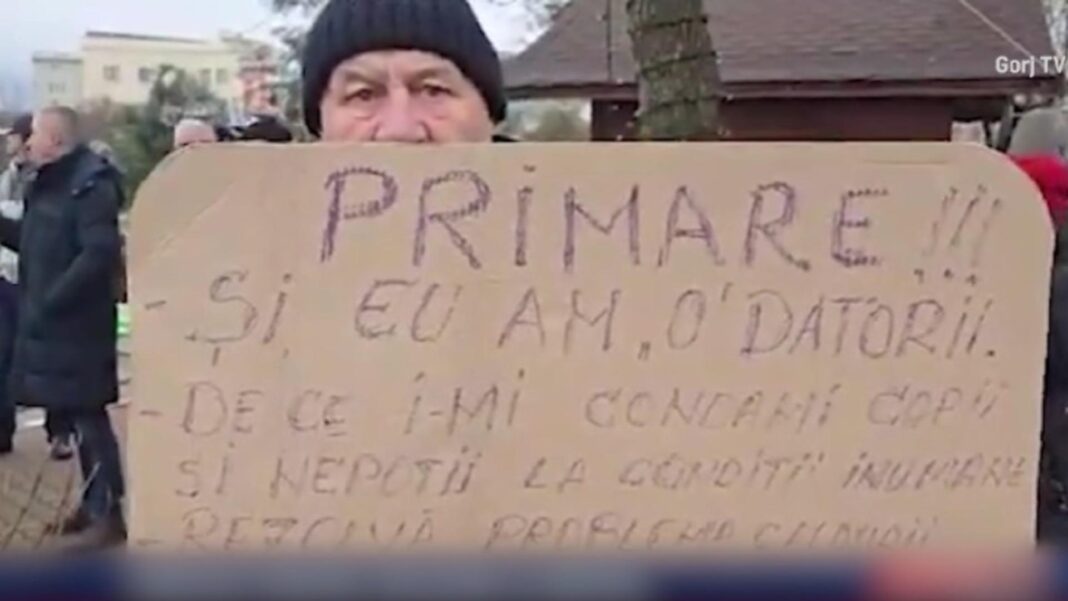 Gorj TV
PRIMARE!!!
- ȘI EU AM "O" DATORII.
- DE CE I-MI CONDAMI COPII
ȘI NEPOTII LA CONDITII INUMANE
- REZOLVĂ PROBLEMA